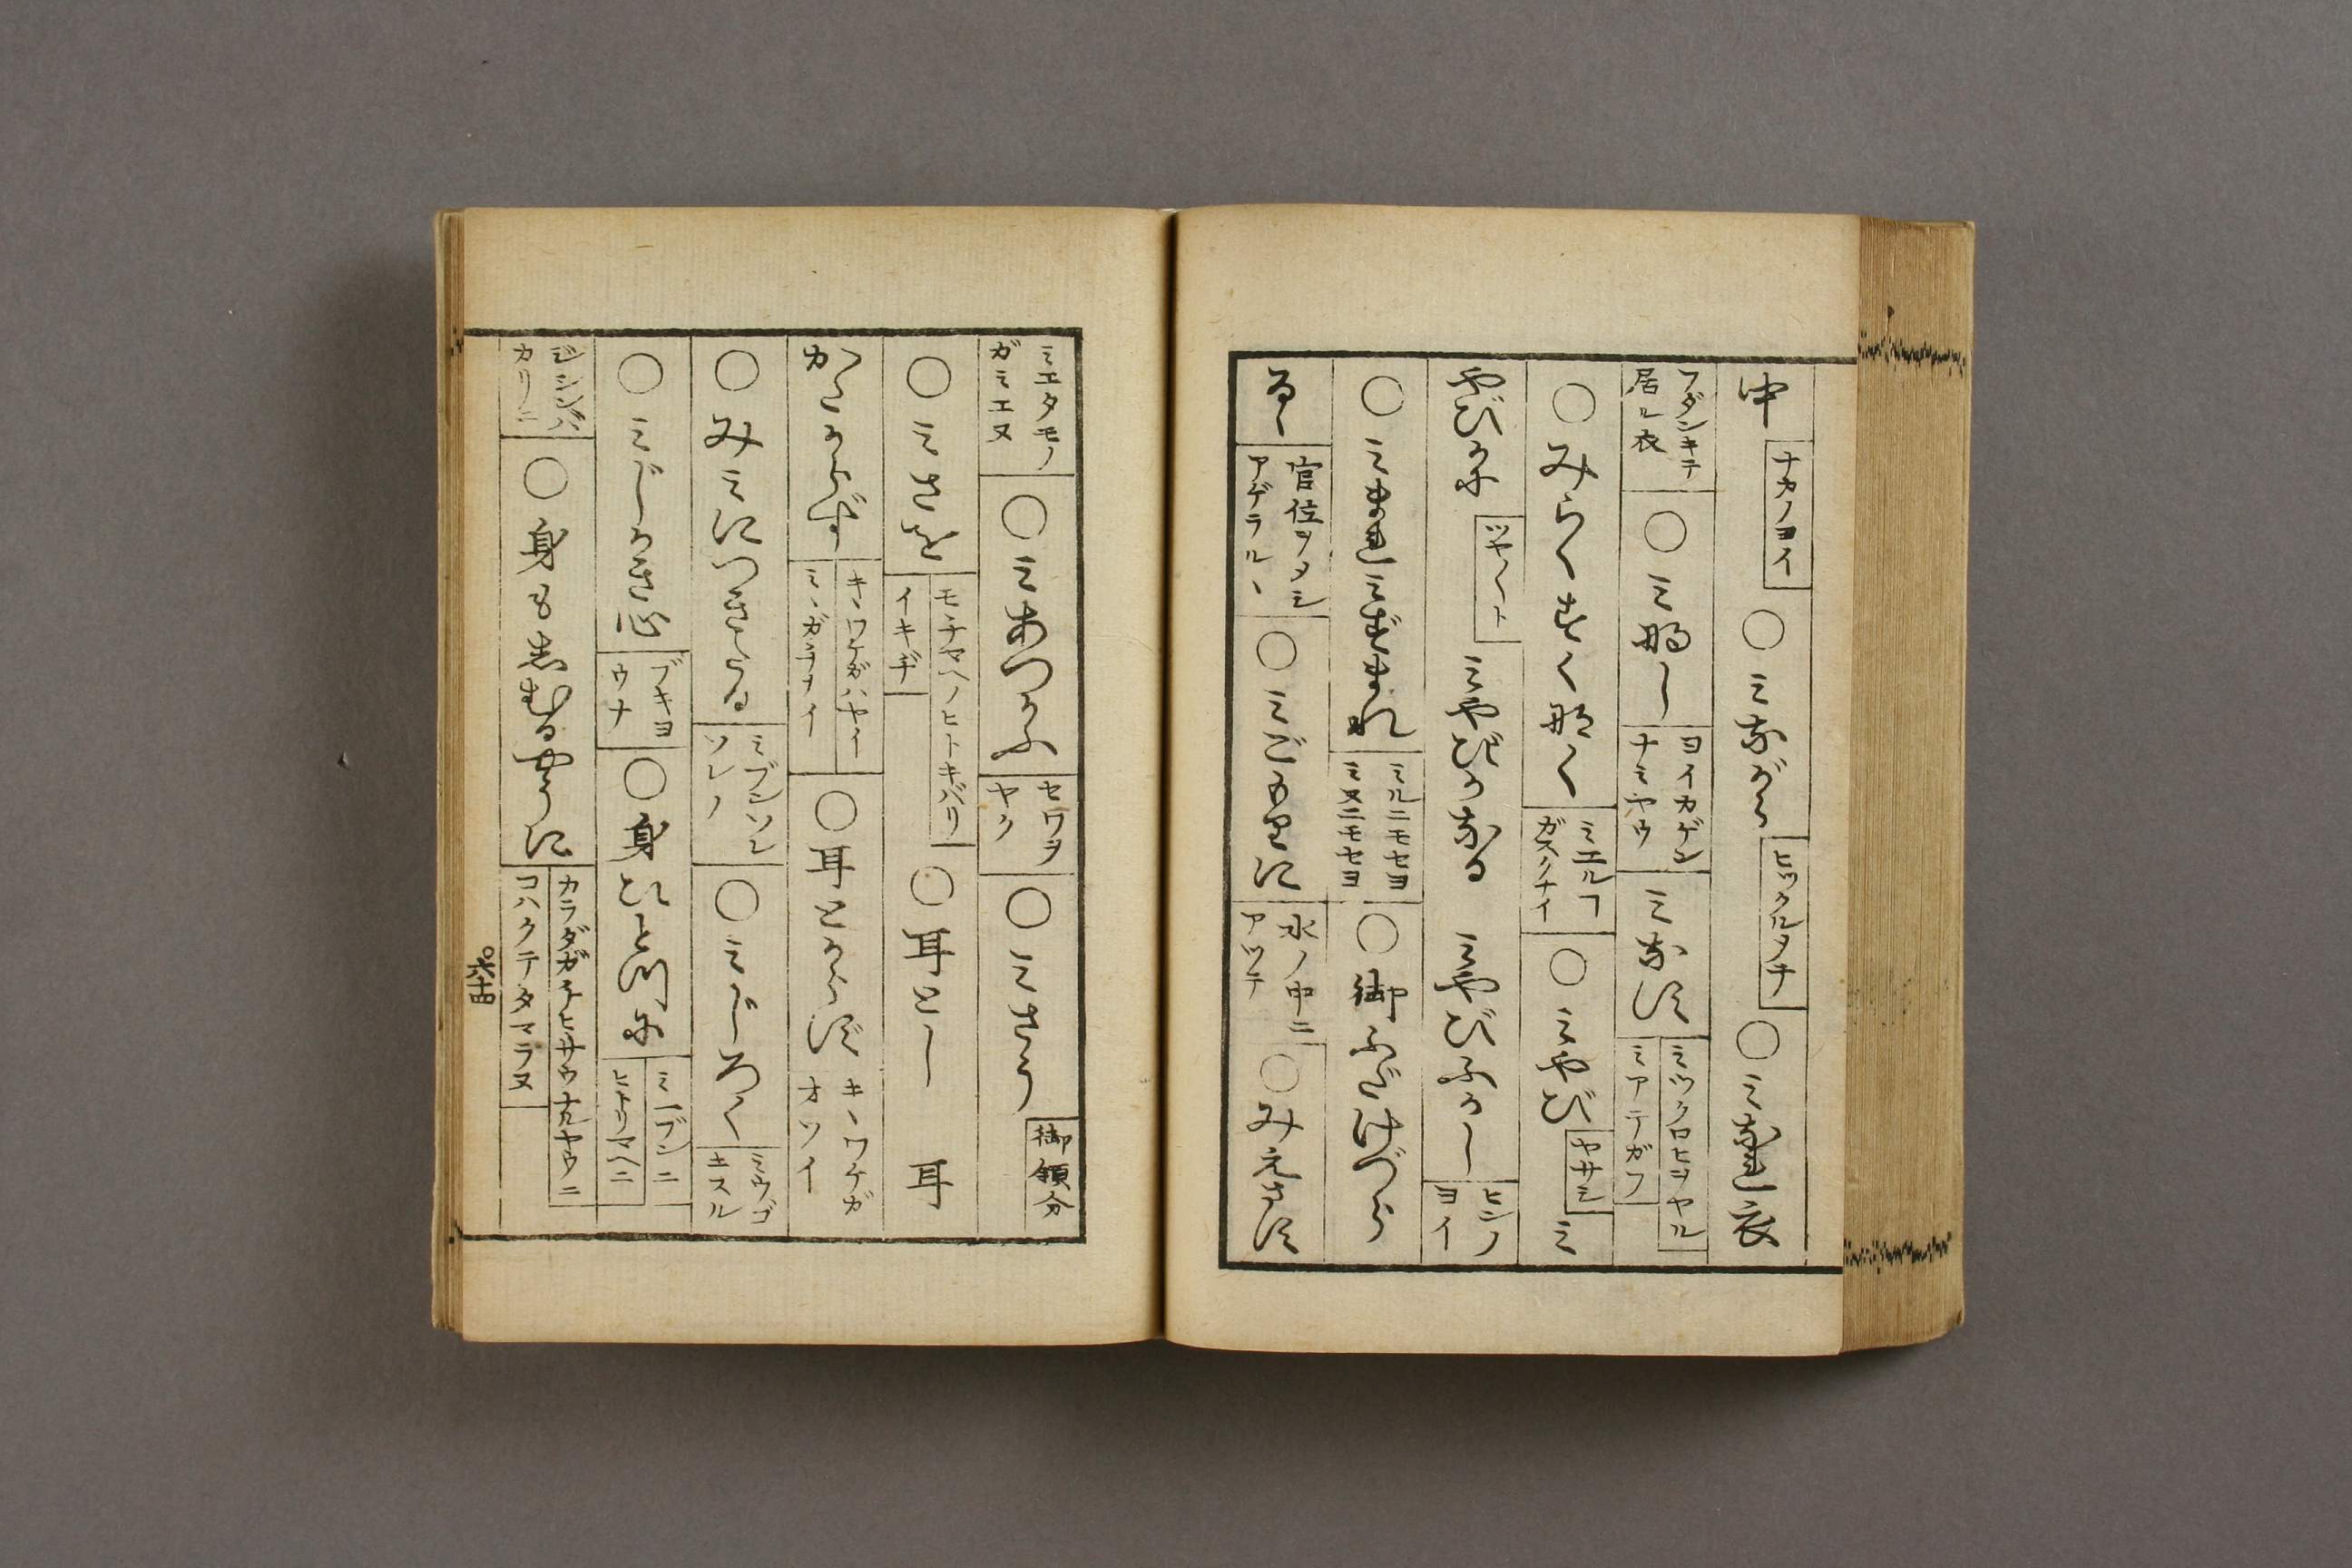 中 ナカノヨイ ○ミながら ヒツクルメテ ○ミなれ衣
フダンキテ居ル衣 ○ミ那し ヨイカゲンナミヤウ ミなす ミツクロヒヲヤル ミアテガフ
○みらくすく那く ミエルヿガスクナイ ○ミやび ヤサシ ミ
やびかに ツヤ〳〵ト ミやびかなる ミやびふかし ヒンノヨイ
○ミまれミずまれ ミルニモセヨミヌニモセヨ ○御ふだけづら
るゝ 官位ヲメシアゲラルヽ ○ミごもりに 水ノ中ニアツテ ○みえます
ミエタモノガミエヌ ○ミあつかふ セワヲヤク ○ミさう 御領分
○ミさを モチマヘノヒトキバリ イキヂ ○耳とし 耳
かどかよばず キヽワケガハヤイ ミヽガチカイ ○耳とからず キヽワケガオソイ
○みミにつきたる ミブンソレソレノ ○ミじろく ミウゴキスル
○ミじかき心 ブキヨウナ ○身ひとつに ミ一ブンニ ヒトリマヘニ
ジシンバカリニ ○身もしむるやうに カラダガチヒサウナルヤウニ コハクテタマラヌ